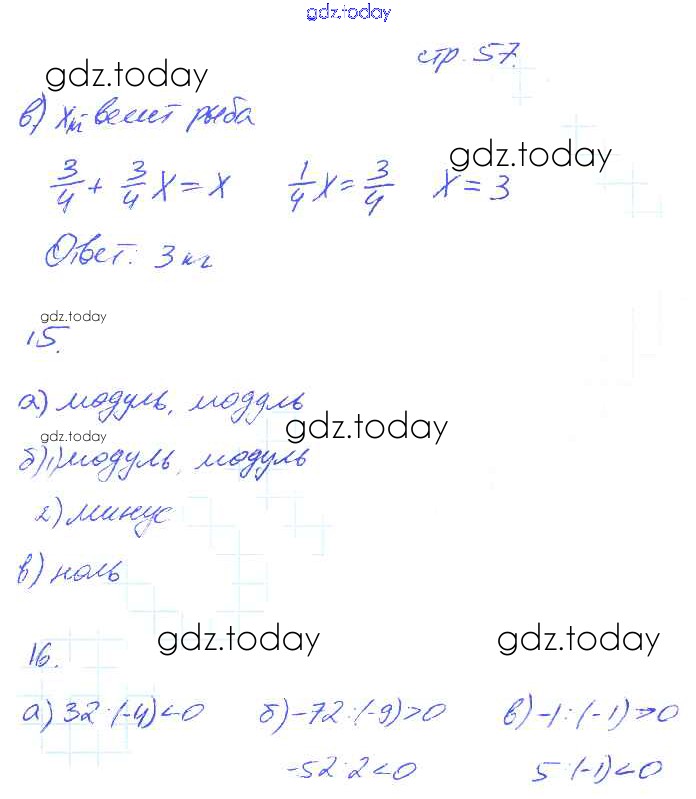 gdz.today
стр. 57.
gdz.today
в) x кг - весит рыба
gdz.today
3/4 + 3/4 X = X 1/4 X = 3/4 X = 3
Ответ: 3 кг
gdz.today
15.
а) модуль, модуль
gdz.today
gdz.today
б) 1) модуль, модуль
2) минус
в) ноль
gdz.today gdz.today
16.
а) 32 : (-4) < 0 б) -72 : (-9) > 0 в) -1 : (-1) > 0
-52 : 2 < 0 5 : (-1) < 0